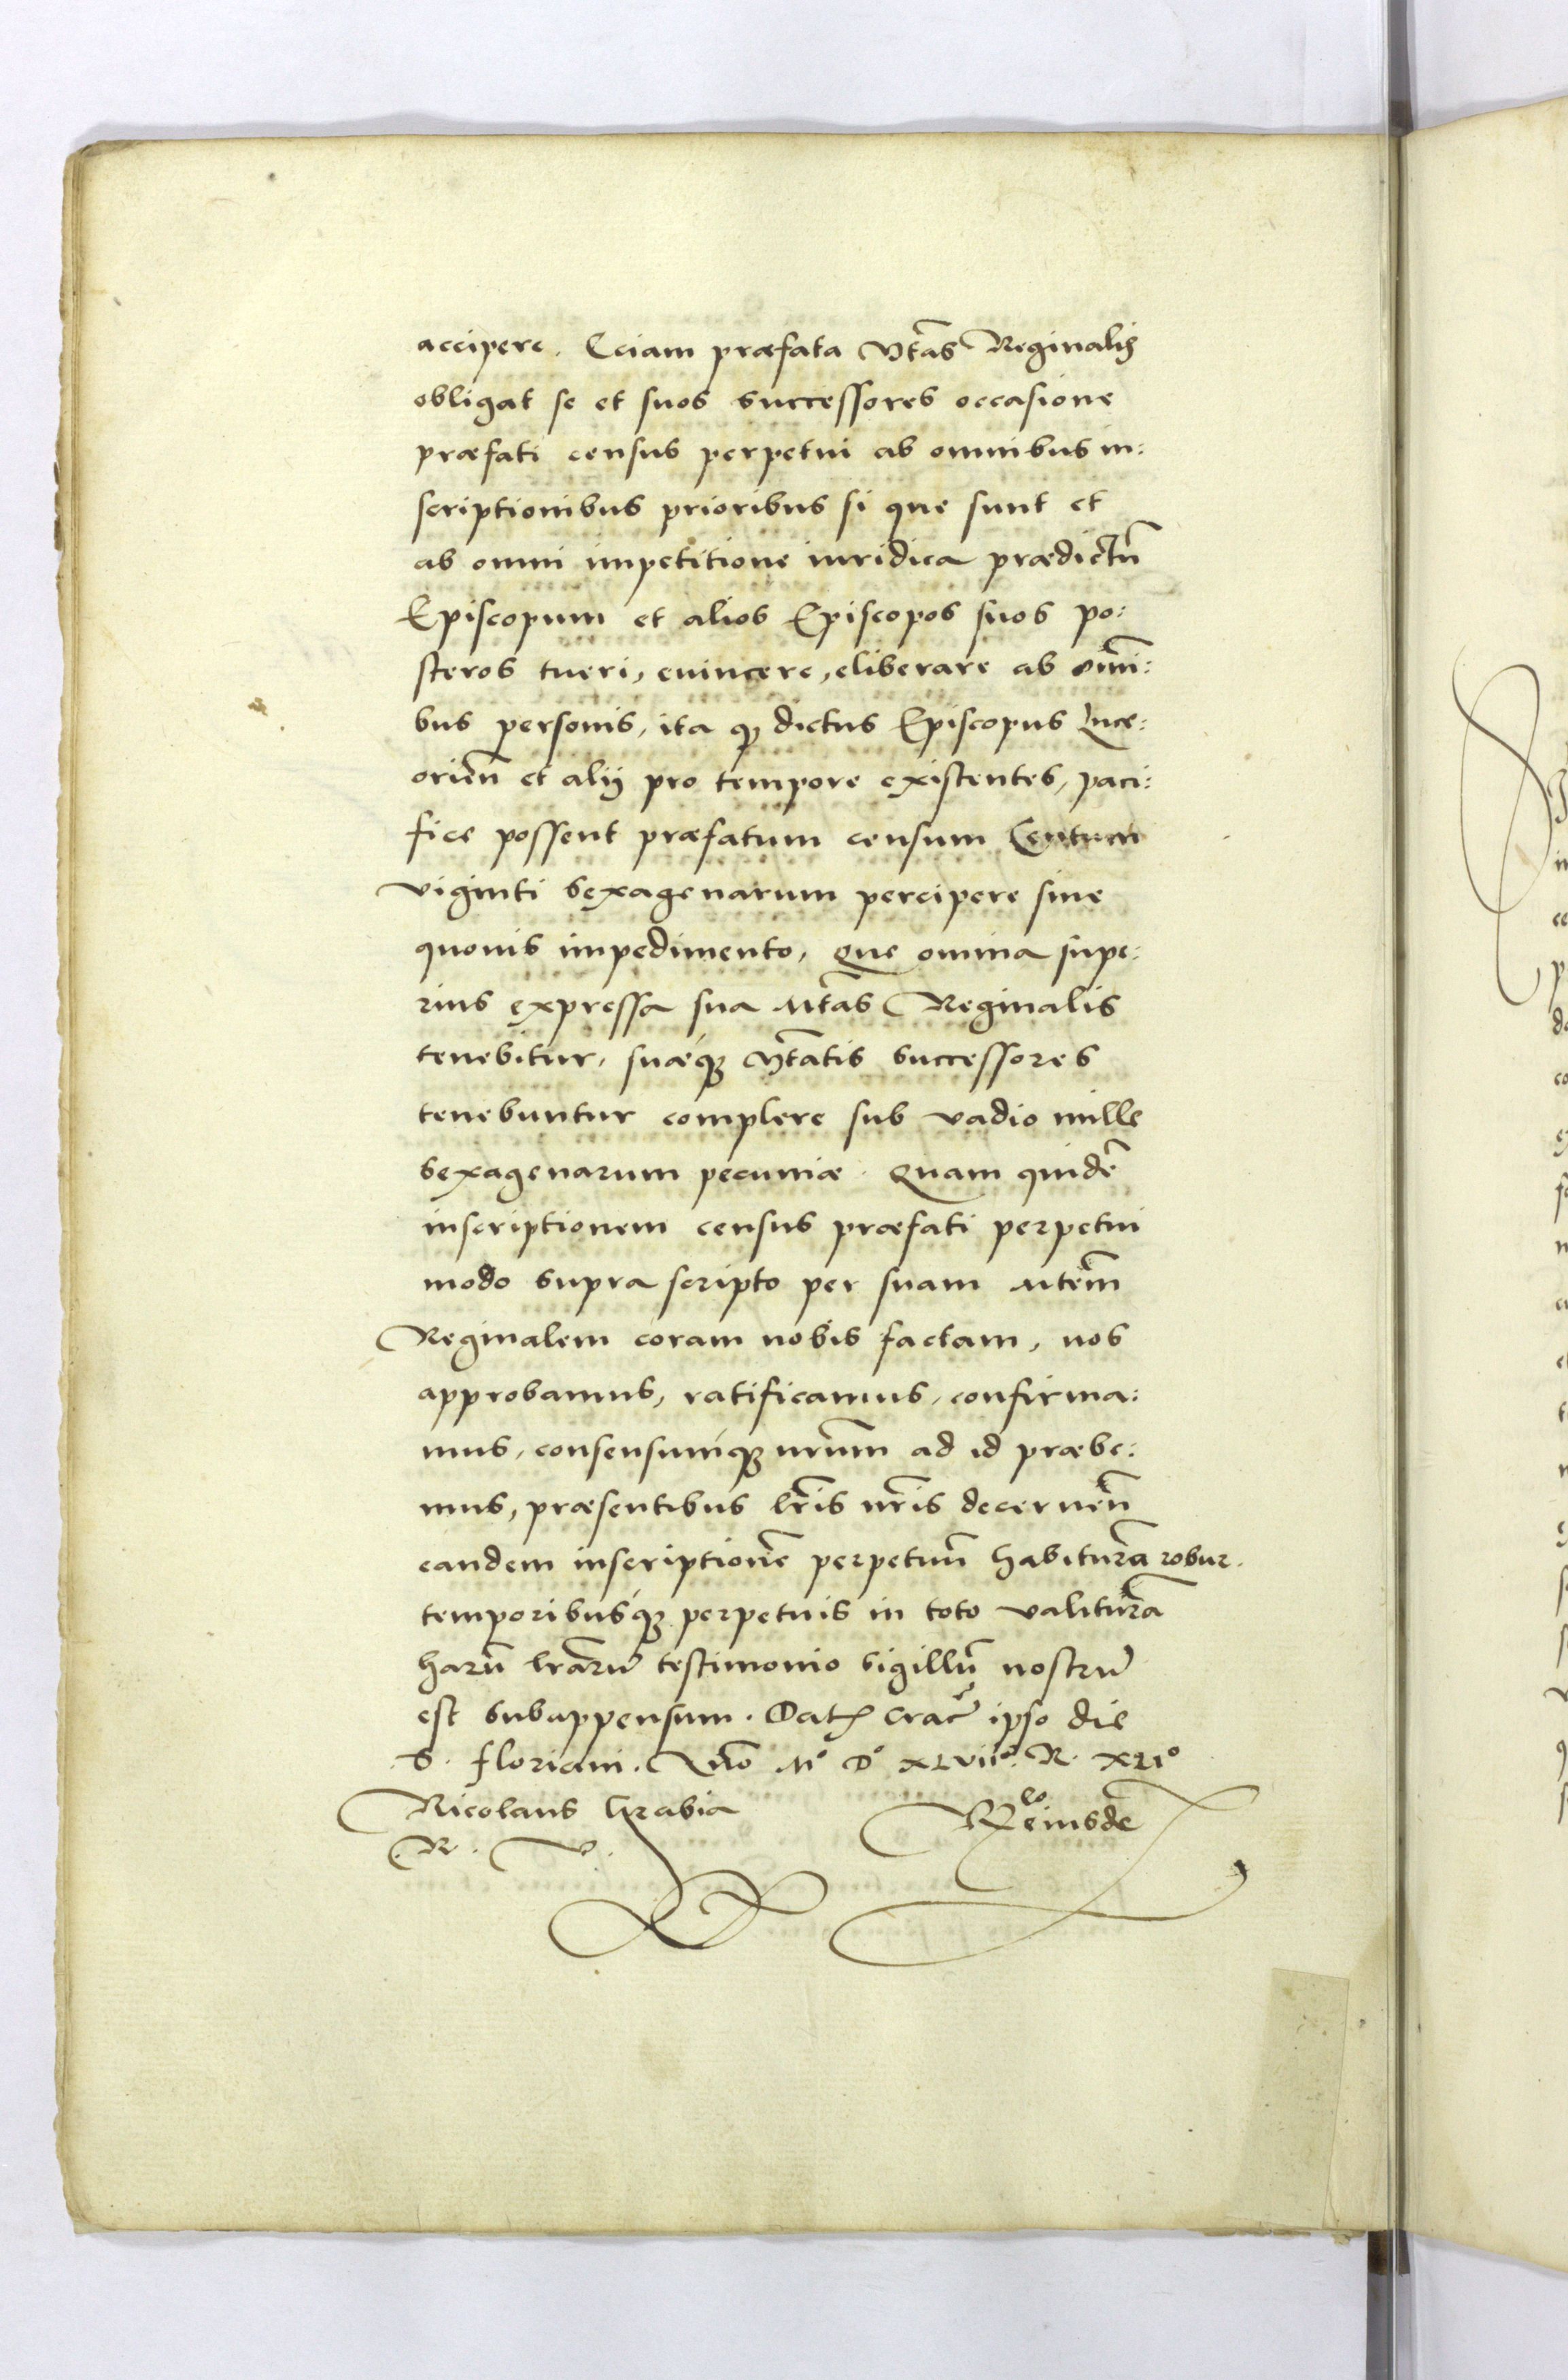 accipere. Eciam præfata Mtãs Reginalis
obligat se et suos successores occasione
præfati census perpetui ab omnibus in:
scriptionibus prioribus si que sunt et
ab omni impetitione iuridica prædictũ
Episcopum et alios Episcopos suos po:
steros tueri, euincere, eliberare ab om̃i:
bus personis, ita ꝙ dictus Episcopus Luce:
orieñ et alij pro tempore existentes, paci:
fice possent præfatum censum Centum
viginti sexagenarum percipere sine
quouis impedimento, que omnia supe:
rius expressa sua Mtãs Reginalis
tenebitur, suæqꝫ Mtãtis successores
tenebuntur complere sub vadio mille
sexagenarum pecuniæ. Quam quidẽ
inscriptionem census præfati perpetui
modo supra scripto per suam Mtẽm
Reginalem coram nobis factam, nos
approbamus, ratificamus, confirma:
mus, consensumqꝫ nr̃um ad id præbe:
mus, præsentibus lr̃is nr̃is decerneñ
eandem inscriptionẽ perpetuũ habiturã robur.
temporibusqꝫ perpetuis in toto valiturã
harũ lrãrũ testimonio sigillũ nostrũ
est subappensum. Datꝭ Crac̃ ipso die
S. floriani. Año Mº Dº XLVIIº. R. XLIº
Nicolaus Grabia
R. V.